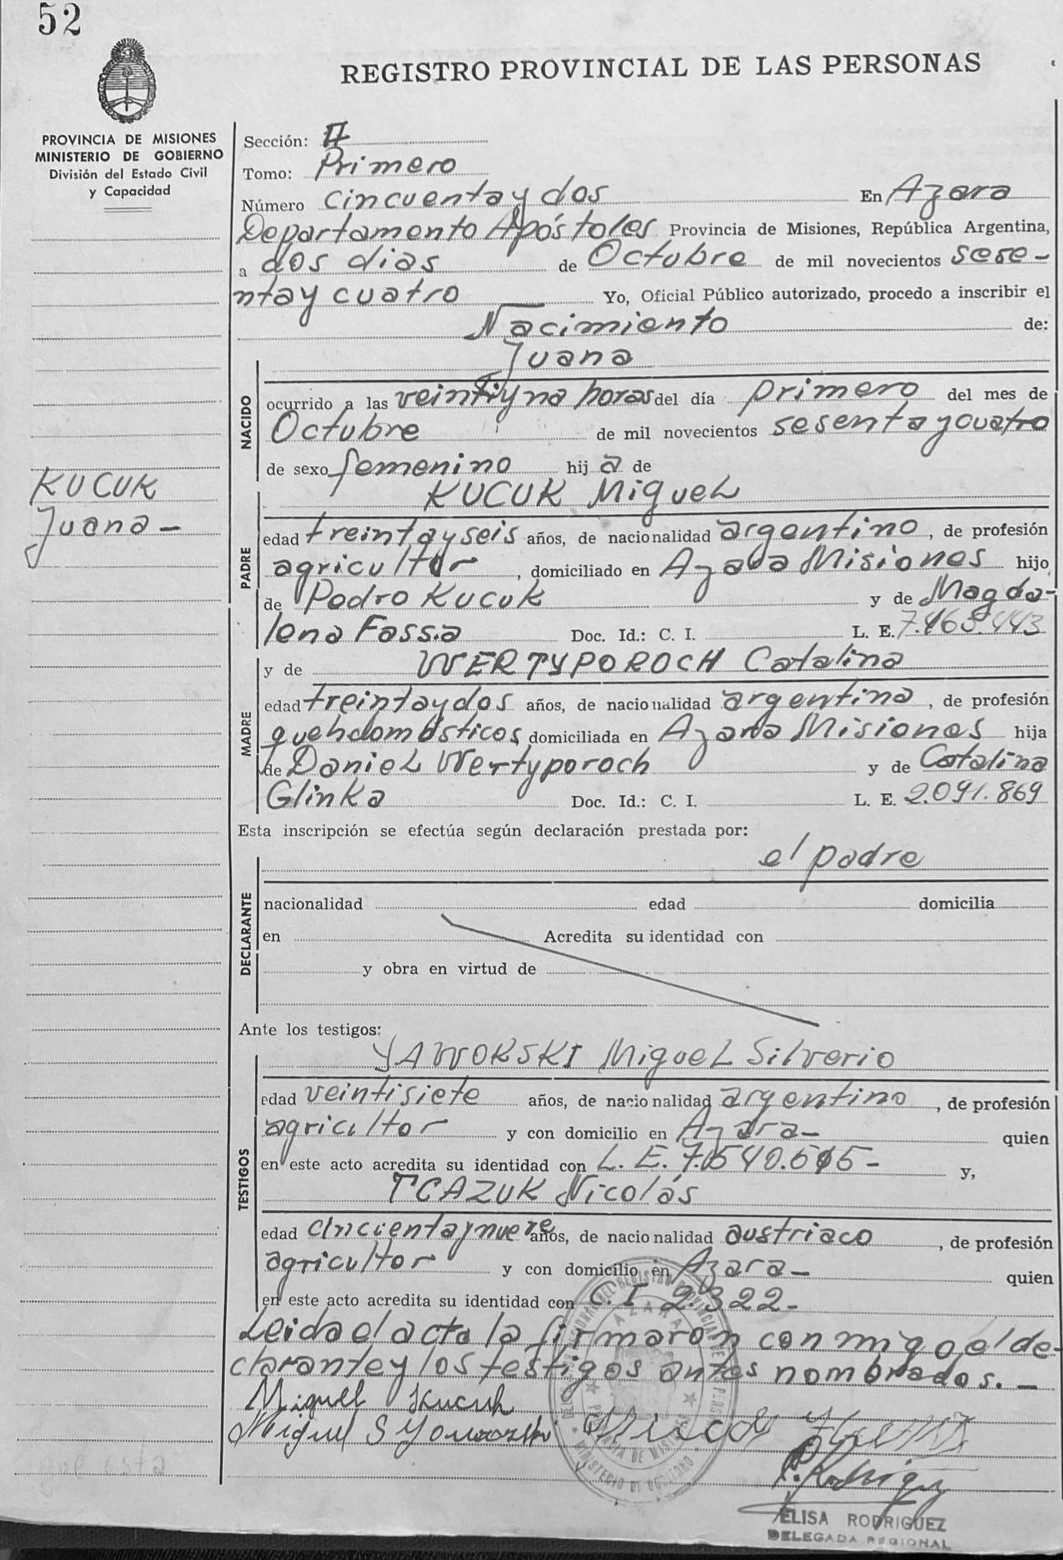 52
REGISTRO PROVINCIAL DE LAS PERSONAS
PROVINCIA DE MISIONES
MINISTERIO DE GOBIERNO
División del Estado Civil
y Capacidad
Sección: II
Tomo: Primero
Número cincuenta y dos En Azara
Departamento Apóstoles Provincia de Misiones, República Argentina,
a dos dias de Octubre de mil novecientos sese-
nta y cuatro Yo, Oficial Público autorizado, procedo a inscribir el
Nacimiento de:
Juana
NACIDO
ocurrido a las veintiyna horas del día primero del mes de
Octubre de mil novecientos sesenta y cuatro
de sexo femenino hij a de
KUCUK
Juana -
KUCUK Miguel
PADRE
edad treinta y seis años, de nacionalidad argentino, de profesión
agricultor, domiciliado en Azara Misiones hijo
de Pedro Kucuk y de Magda-
lena Fassa Doc. Id.: C. I. L. E. 7.463.443
y de WERTYPOROCH Catalina
MADRE
edad treinta y dos años, de nacionalidad argentina, de profesión
domésticos, domiciliada en Azara Misiones hija
de Daniel Wertyporoch y de Catalina
Glinka Doc. Id.: C. I. L. E. 2.091.869
Esta inscripción se efectúa según declaración prestada por:
el padre
DECLARANTE
nacionalidad edad domicilia
en Acredita su identidad con
y obra en virtud de
Ante los testigos:
YAWORSKI Miguel Silverio
TESTIGOS
edad veintisiete años, de nacionalidad argentino, de profesión
agricultor y con domicilio en Azara- quien
en este acto acredita su identidad con L. E. y,
TCAZUK Nicolás
edad cincienta y nueve años, de nacionalidad austriaco, de profesión
agricultor y con domicilio en Azara- quien
en este acto acredita su identidad con C. I 2.322-
Leida el acta la firmaron con migo el de-
clarante y los testigos antes nombrados. -
Miguel Kucuk
Miguel S Yaworski
E. Rodriguez
ELISA RODRIGUEZ
DELEGADA REGIONAL